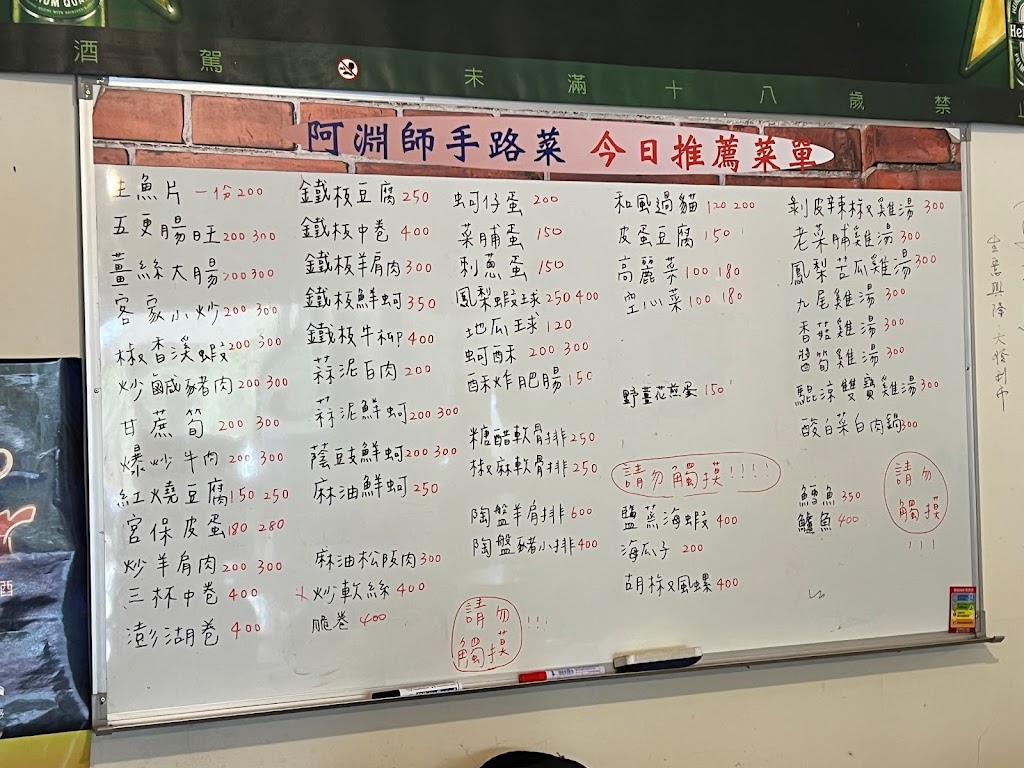 酒 駕
未 滿 十 八 歲 禁 止
阿淵師手路菜 今日推薦菜單
生魚片 一份200
五更腸旺 200 300
薑絲大腸 200 300
客家小炒 200 300
椒香溪蝦 200 300
炒鹹豬肉 200 300
甘蔗筍 200 300
爆炒牛肉 200 300
紅燒豆腐 150 250
宮保皮蛋 180 280
炒羊肩肉 200 300
三杯中卷 400
澎湖卷 400
鐵板豆腐 250
鐵板中卷 400
鐵板羊肩肉 300
鐵板鮮蚵 350
鐵板牛柳 400
蒜泥白肉 200
蒜泥鮮蚵 200 300
蔭豉鮮蚵 200 300
麻油鮮蚵 250
麻油松阪肉 300
炒軟絲 400
脆卷 400
蚵仔蛋 200
菜脯蛋 150
刺蔥蛋 150
鳳梨蝦球 250 400
地瓜球 120
蚵酥 200 300
酥炸肥腸 150
糖醋軟骨排 250
椒麻軟骨排 250
陶盤羊肩排 600
陶盤豬小排 400
請勿
觸摸
!!!
和風過貓 120 200
皮蛋豆腐 150
高麗菜 100 180
空心菜 100 180
野薑花煎蛋 150
請勿觸摸!!!!
鹽蒸海蝦 400
海瓜子 200
胡椒風螺 400
剝皮辣椒雞湯 300
老菜脯雞湯 300
鳳梨苦瓜雞湯 300
九尾雞湯 300
香菇雞湯 300
醬筍雞湯 300
鯤涼雙寶雞湯 300
酸白菜白肉鍋 300
鱈魚 350
鱸魚 400
請勿
觸摸
!!!
生意興隆 大發利市